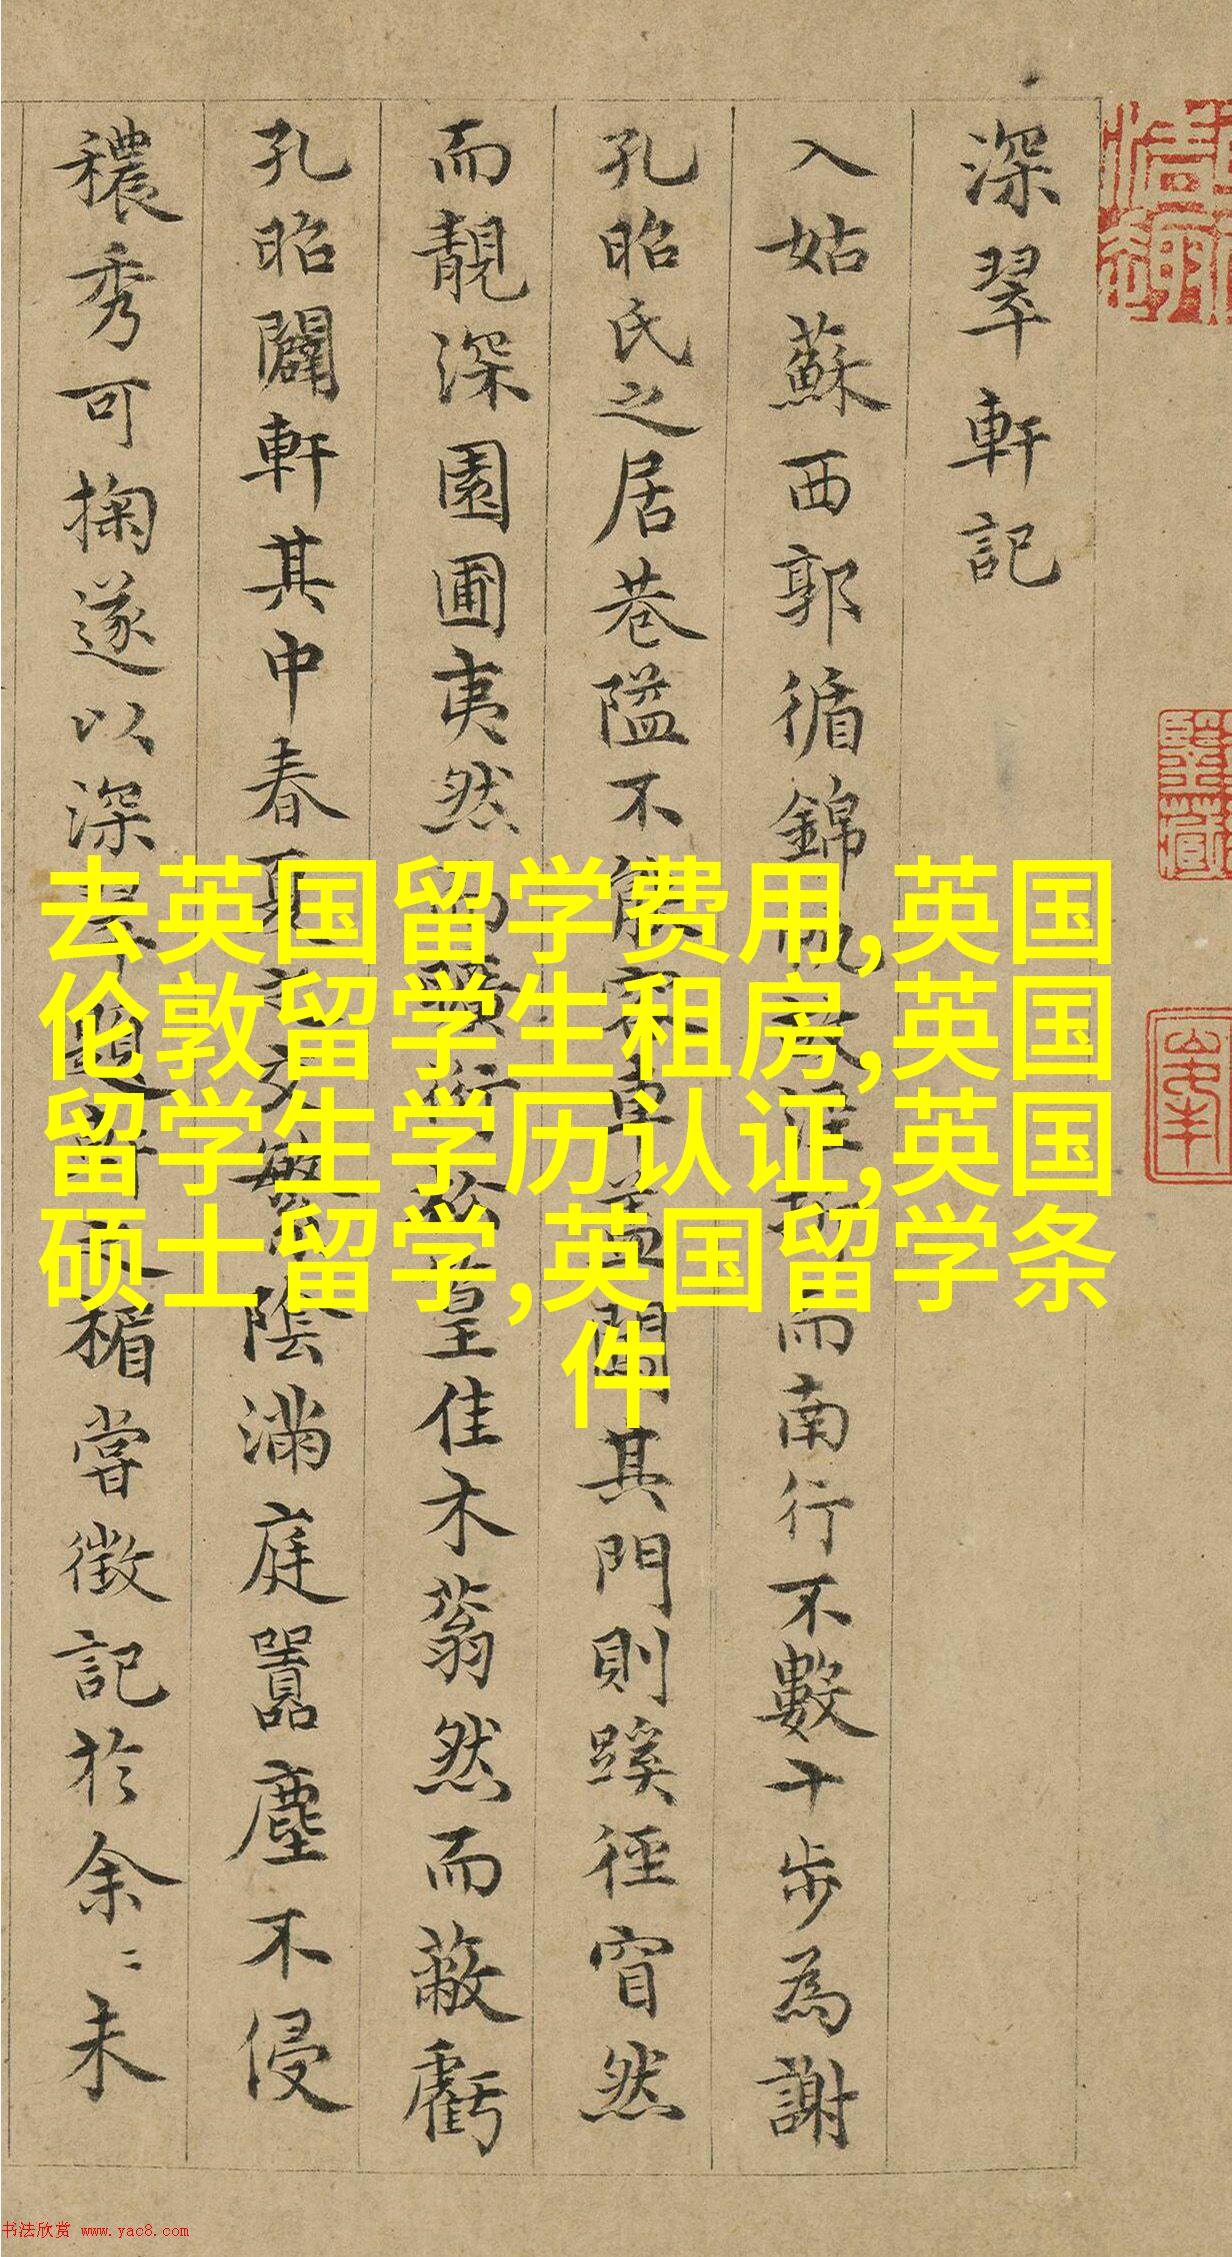 深翠軒記
入姑蘇西郭循錦帆涇而南行不數十步為謝
孔昭氏之居巷隘不能容車蓋其門則蹊徑窅然
而靚深園圃夷然而曠衍篁佳木蓊然而蔽虧
孔昭闢軒其中春夏之交繁陰滿庭囂塵不侵
穠秀可掬遂以深翠題軒之楣嘗徵記於余〻未
去英国留学费用,英国
伦敦留学生租房,英国
留学生学历认证,英国
硕士留学,英国留学条
件
书法欣赏 www.yac8.com